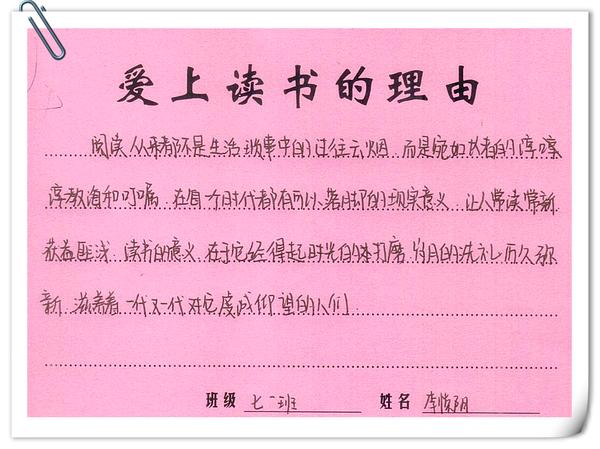 爱上读书的理由
阅读从来都不是生活琐事中的过往云烟 而是宛如长者的谆谆
谆教诲和叮嘱 在每个时代都有可以落脚的现实意义 让人常读常新
获益匪浅 读书的意义 在于它经得起时光的打磨 岁月的洗礼 历久弥
新 滋养着一代又一代对它虔成仰望的人们
班级 七一班 姓名 李